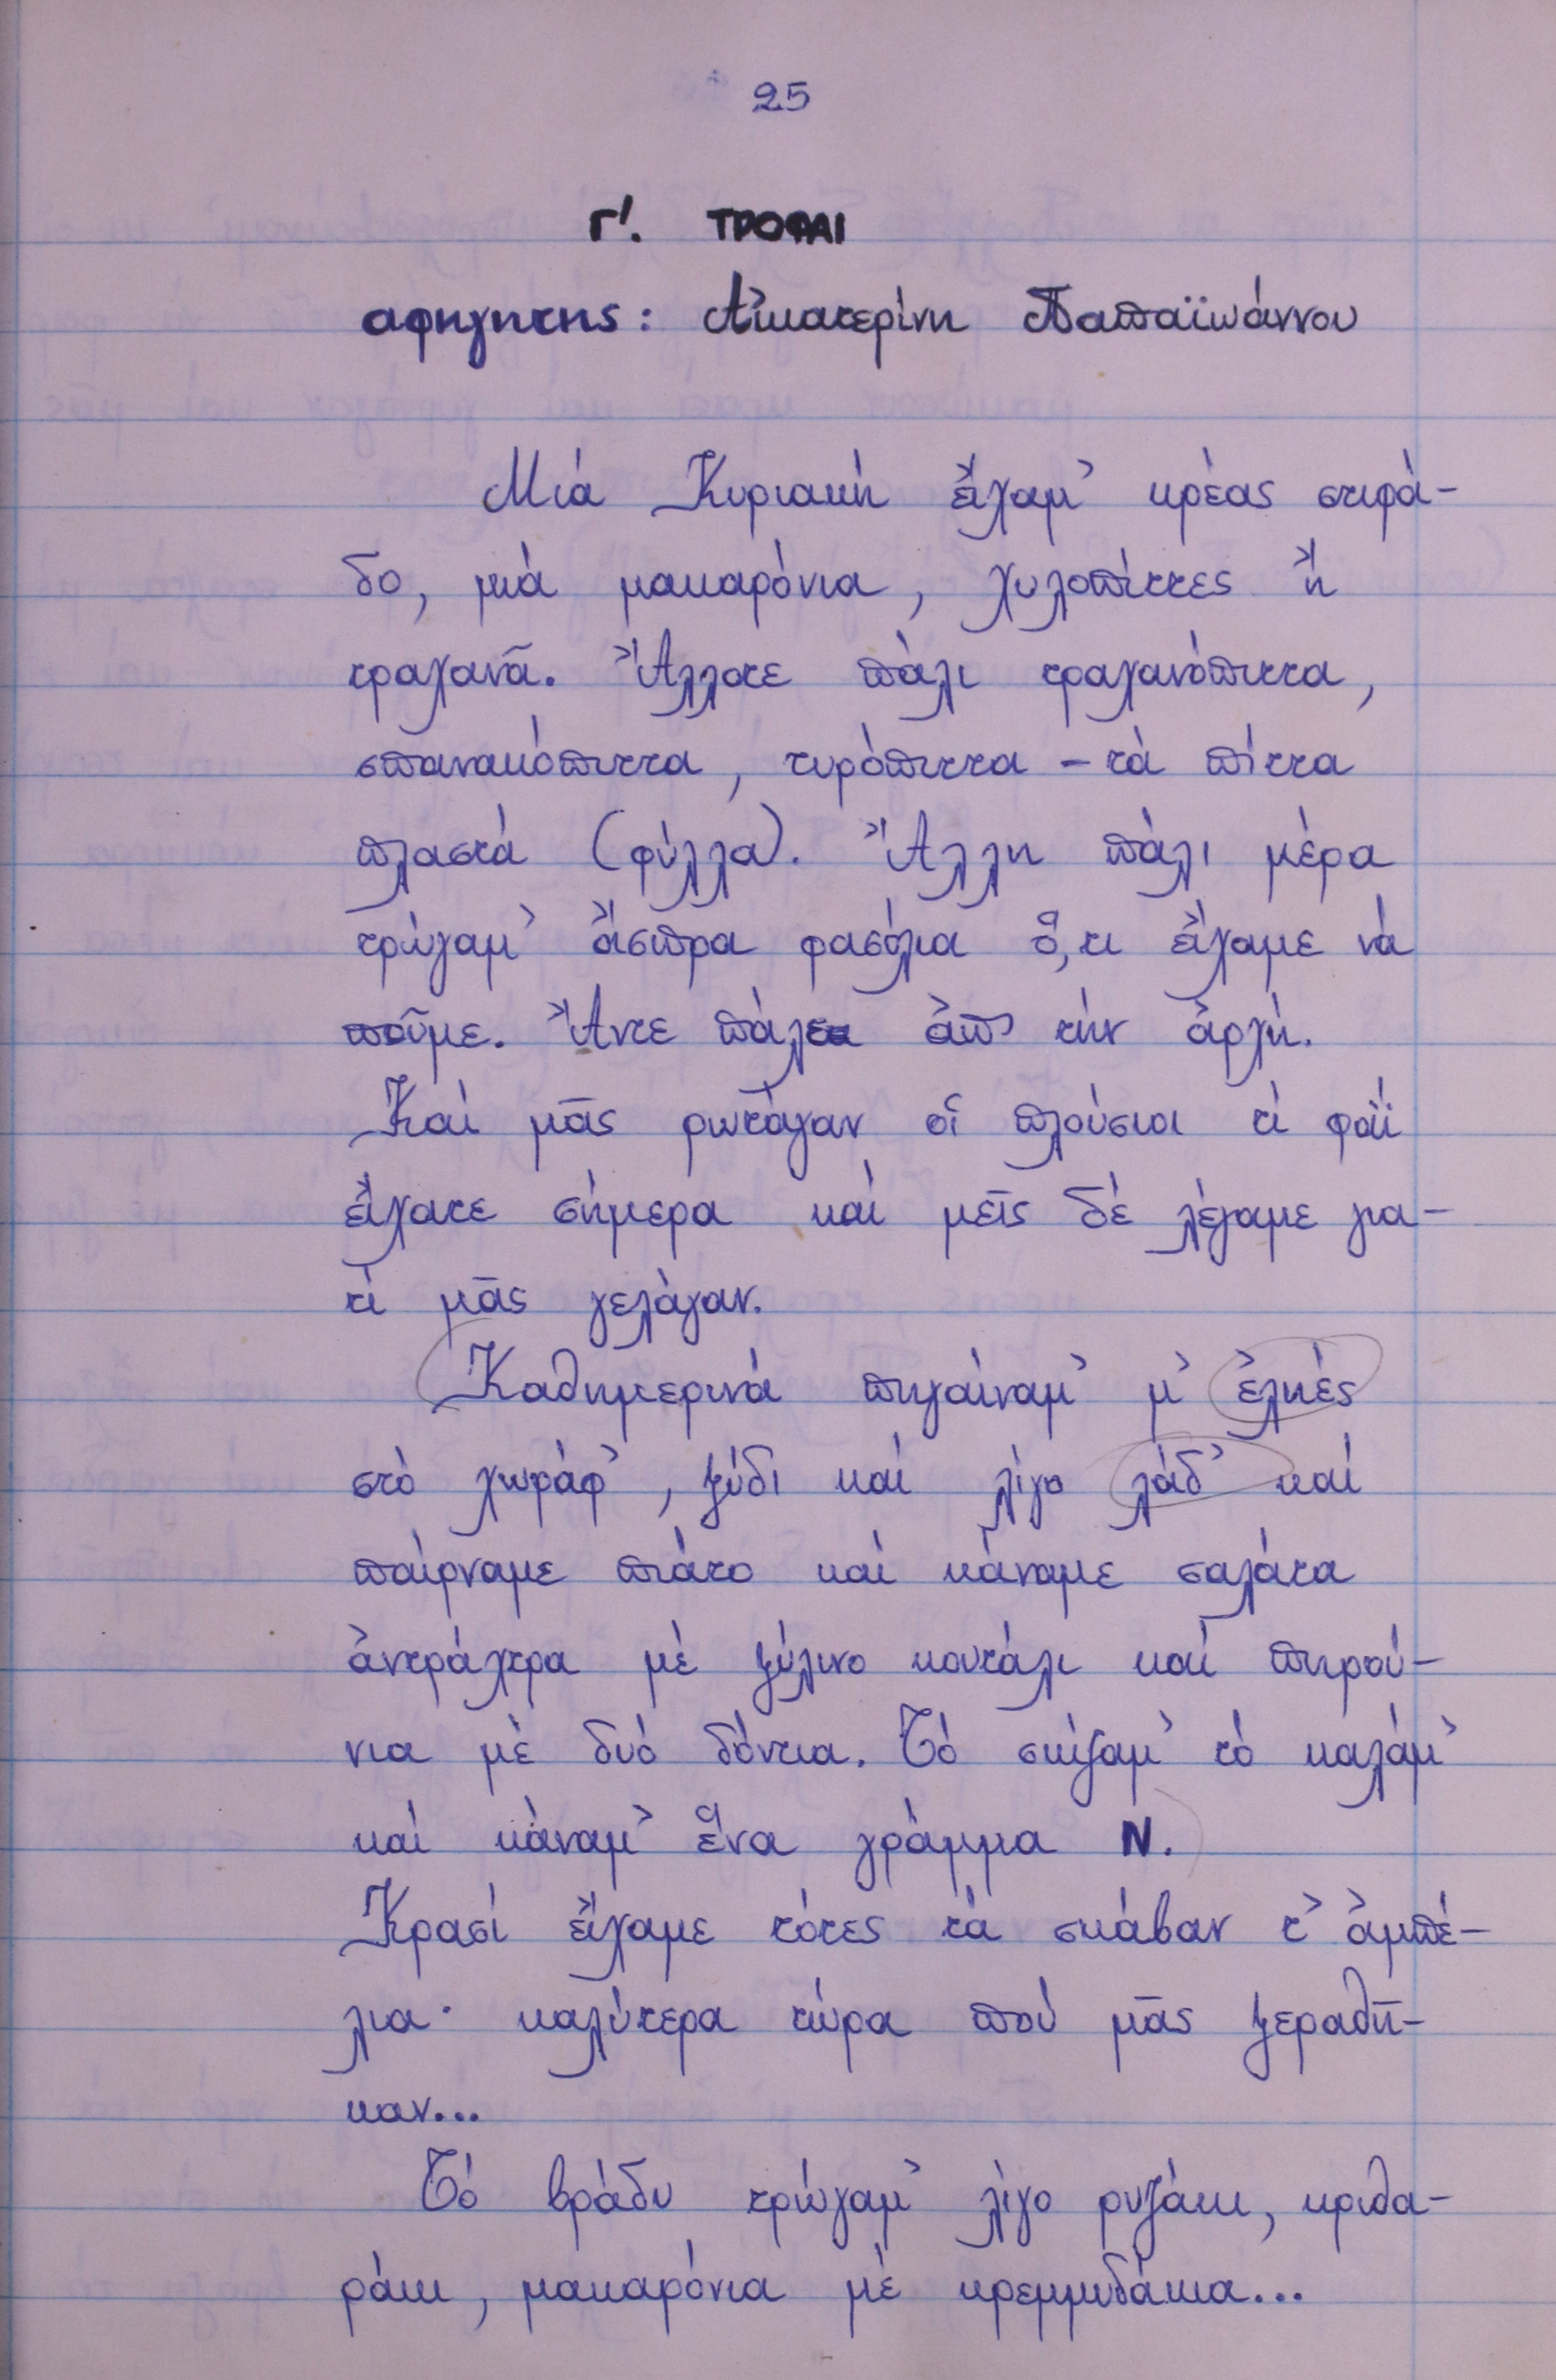 25
Γ'. ΤΡΟΦΑΙ
αφηγητης: Αἰκατερίνη Παπαϊωάννου
Μιά Κυριακή εἴχαμ' κρέας στιφά-
δο, μιά μακαρόνια, χυλοπίττες ἤ
τραχανᾶ. Ἄλλοτε πάλι τραχανόπιττα,
σπανακόπιττα, τυρόπιττα - τά πίττα
πλαστά (φύλλα). Ἄλλη πάλι μέρα
τρώγαμ' ἄσπρα φασόλια ὅ,τι εἴχαμε νά
ποῦμε. Ἄντε πάλε ἀπ' τήν ἀρχή.
Καί μᾶς ρωτάγαν οἱ πλούσιοι τί φαΐ
εἴχατε σήμερα καί μεῖς δέ λέγαμε για-
τί μᾶς γελάγαν.
Καθημερινά πηγαίναμ' μ' ἐληές
στό χωράφ', ξύδι καί λίγο λάδ' καί
παίρναμε πιάτο καί κάναμε σαλάτα
ἀντράχτρα μέ ξύλινο κουτάλι καί πηρού-
νια μέ δυό δόντια. Τό σκίζαμ' τό καλάμ'
καί κάναμ' ἕνα γράμμα Ν.
Κρασί εἴχαμε τότες τά σκάβαν τ' ἀμπέ-
λια· καλύτερα τώρα πού μᾶς ξεραθῆ-
καν...
Τό βράδυ τρώγαμ' λίγο ρυζάκι, κριθα-
ράκι, μακαρόνια μέ κρεμμυδάκια...